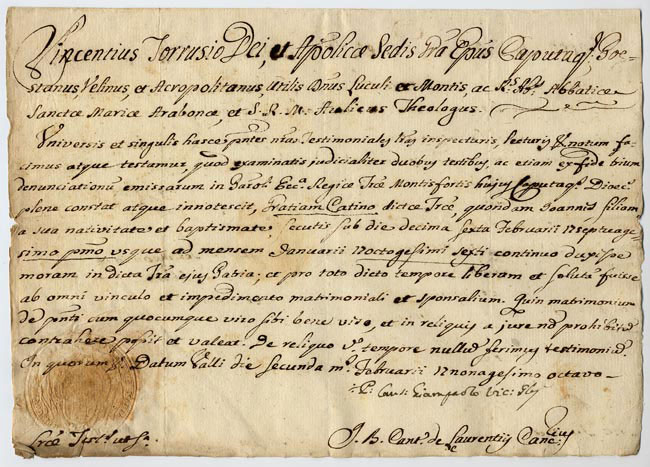 Vincentius Torrusio Dei, et Ap'olicæ Sedis gra Ep'us Caputaq. Poe-
stanus, Velinus, et Acropolitanus, Utilis D'nus Luculi et Montis, ac Abbatiæ
Sanctæ Mariæ Arabonæ, et S. R. M. Aulicus Theologus.
Universis et singulis hasce p'ntes n'ras Testimoniales l'ras inspecturis, lecturis notum fa-
cimus atque testamur, quod examinatis judicialiter duobus testibus, ac etiam ex fide trium
denunciationu emissarum in Paroli Ecc.a Regiæ Træ Montisfortis hujus Caputaq. Dioec.
plene constat atque innotescit, Catino dictæ Træ, quondam Joannis filiam
a sua nativitate et baptismate secutis sub die decima sexta Februarii septuage-
simo p'mo usque ad mensem Januarii octogesimi sexti continuo duxisse
moram in dicta T'ra ejus Patria; et pro toto dicto tempore liberam et soluta fuisse
ab omni vinculo et impedimento matrimoniali et sponsalium. Quin matrimonium
de p'nti cum quocumque viro sibi bene viso, et in reliquis a jure no prohibito
contrahere possit et valeat. De reliquo v.o tempore nullu ferimus testimoniu.
In quorum Datum Valli die secunda m. Februarii nonagesimo octavo-
Vic.
J. B. Cant. de Laurentiis Canc.